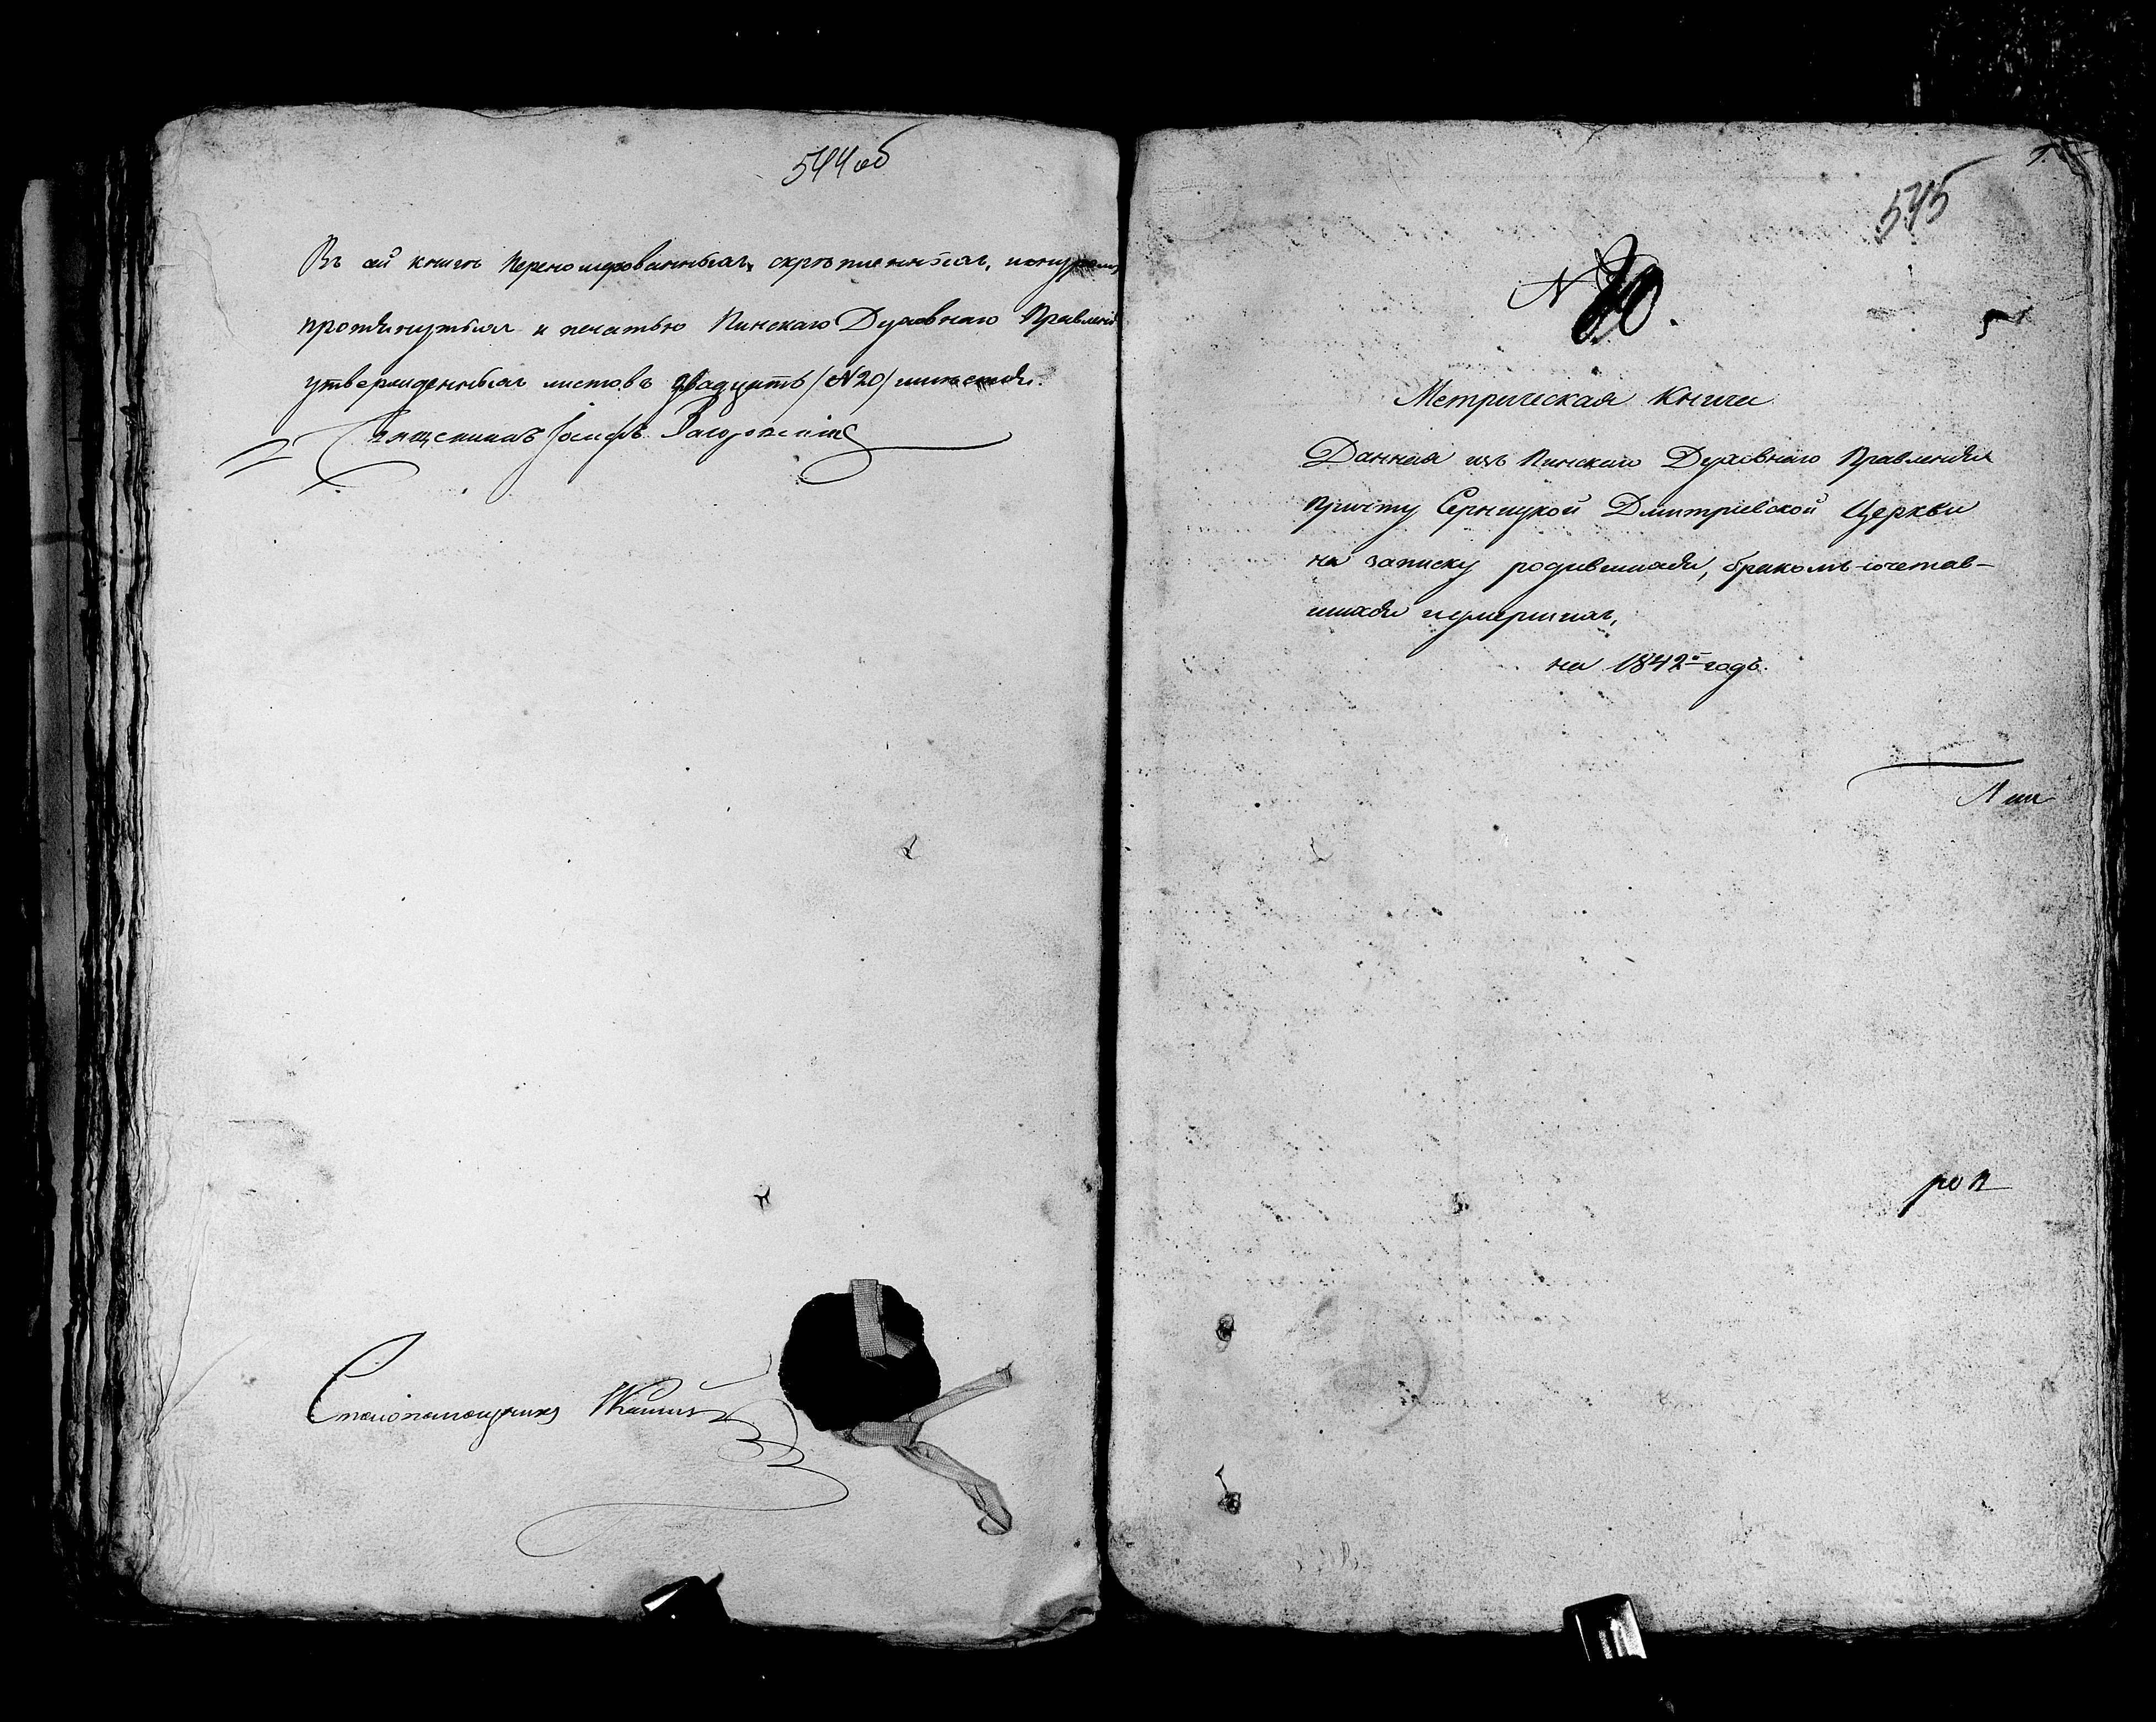 544 об
Въ сей книгѣ перенумерованныхъ, скрѣпленныхъ, шнуромъ
протянутыхъ и печатью Пинскаго Духовнаго Правленія
утвержденныхъ листовъ двадцать (№ 20) имѣется.
Священникъ Іосифъ
Столопомощникъ
545
№ 20.
5
Метрическая Книга
Данная изъ Пинскаго Духовнаго Правленія
Причту Серницкой Дмитріевской Церкви
на записку родившихся, бракомъ сочетав-
шихся и умершихъ,
на 1842й годъ.